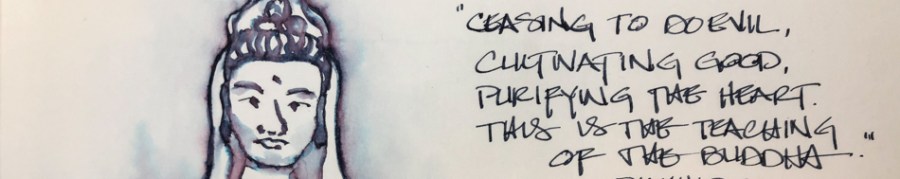 "CEASING TO DO EVIL,
CULTIVATING GOOD,
PURIFYING THE HEART.
THIS IS THE TEACHING
OF THE BUDDHA."